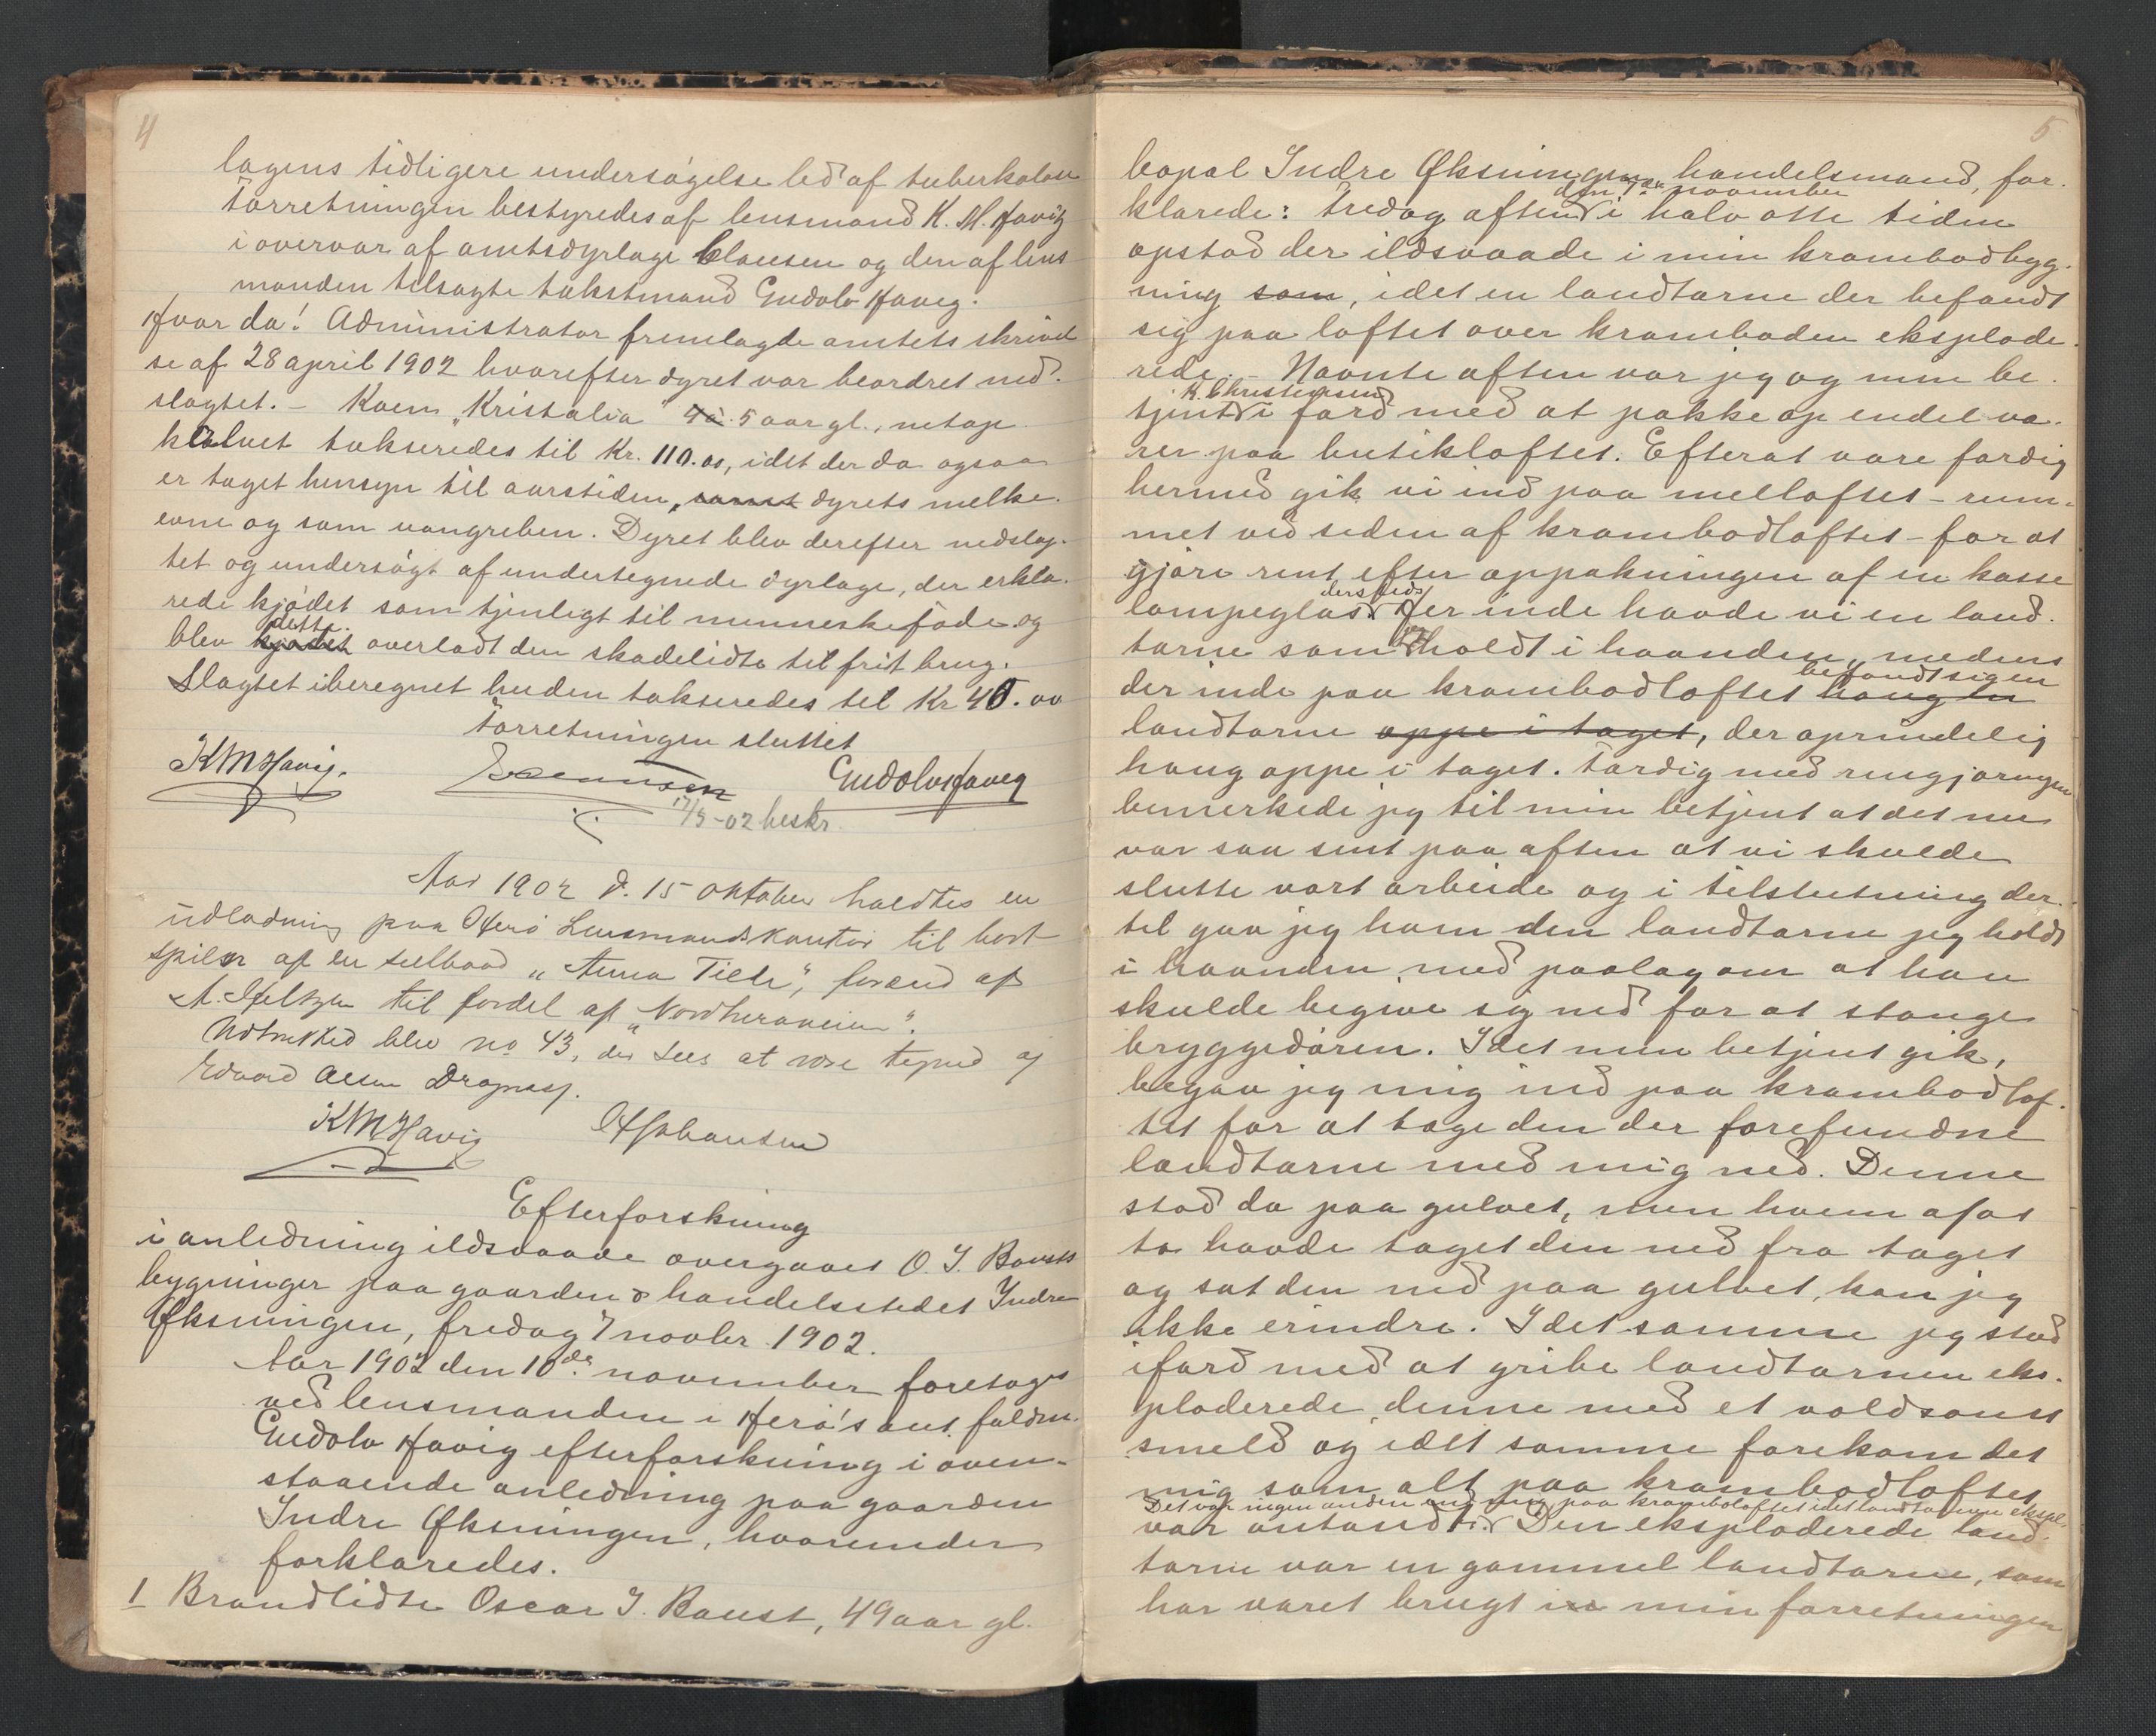 4
lægens tidligere undersøgelse led af tuberkolose
Forretningen bestyredes af lensmand K. M. Havig
i overvær af amtsdyrlæge Clausen og den af lens
manden tilsagte takstmand Gudolv Haveg.
Hvor da! Administrator fremlagde amtets skrivel
se af 28 april 1902 hvorefter dyret var beordret ned-
slagtet. – Koen "Kristalia" 5 aar gl., netop
kalvet takseredes til Kr. 110.00, idet der da ogsaa
er taget hensyn til aarstiden, samt dyrets melke-
evne og som uangreben. Dyret blev derefter nedslag-
tet og undersøgt af undertegnede dyrlæge, der erklæ-
rede kjødet som tjenligt til menneskeføde og
dette
blev kjødet overladt den skadelidte til frit brug.
Slagtet iberegnet huden takseredes til Kr 40.00
Forretningen sluttet
KMHavig. Gudolv Haveg
17/5-02 beskr.
Aar 1902 d. 15 oktober holdtes en
udlodning paa Herø Lensmandskontor til bort-
spilen af en selbaad "Anna Tilde",
til fordel af "Nordherøveien".
Udtrukked blev no 43, der sees at være tegned af
Edvard Olsen Dragnes.
KMHavig O Johansen
Efterforskning
i anledning ildsvaade overgaaet O. J. Bousts
bygninger paa gaarden & handelsstedet Indre
Øksningen, fredag 7 novbr. 1902.
Aar 1902 den 10de november foretoges
ved lensmanden i Herø's ant. fuldm.
Gudolv Havig efterforskning i oven-
staaende anledning paa gaarden
Indre Øksningen, hvorunder
forklaredes.
1 Brandlidte Oscar J. Boust, 49 aar gl.
5
bopæl Indre Øksningen, handelsmand, for-
den 7de november
klarede: Fredag aften i halv otte tiden
opstod der ildsvaade i min krambodbyg-
ning som, idet en landtærne der befandt
sig paa loftet over kramboden eksplode-
rede. – Nævnte aften var jeg og min be-
K. Christensen
tjent i færd med at pakke op endel va-
rer paa butikloftet. Efterat være færdig
hermed gik vi ind paa melloftet – rum-
met ved siden af krambodloftet – for at
gjøre rent efter oppakningen af en kasse
dersteds
lampeglas. Her inde havde vi en land-
jeg
tærne som holdt i haanden, medens
befandt sig en
der inde paa krambodloftet hang en
landtærne oppe i taget, der oprindelig
hang oppe i taget. Færdig med rengjøringen
bemerkede jeg til min betjent at det nu
var saa sent paa aften at vi skulde
slutte vort arbeide og i tilslutning der-
til gav jeg ham den landtærne jeg holdt
i haanden med paalæg om at han
skulde begive sig ned for at stænge
bryggedøren. Idet min betjent gik,
begav jeg mig ind paa krambodlof-
tet for at tage den der forefundne
landtærne med mig ned. Denne
stod da paa gulvet, men hvem af os
to havde taget den ned fra taget
og sat den ned paa gulvet, kan jeg
ikke erindre. I det samme jeg stod
ifærd med at gribe landtærnen eks-
ploderede denne med et voldsomt
smeld og idet samme forekom det
mig som alt paa krambodloftet
Det var ingen anden end mig paa kramboloftet idet landtærnen ekspl.
var antændt. Den eksploderede land-
tærne var en gammel landtærne, som
har været brugt i min forretningen